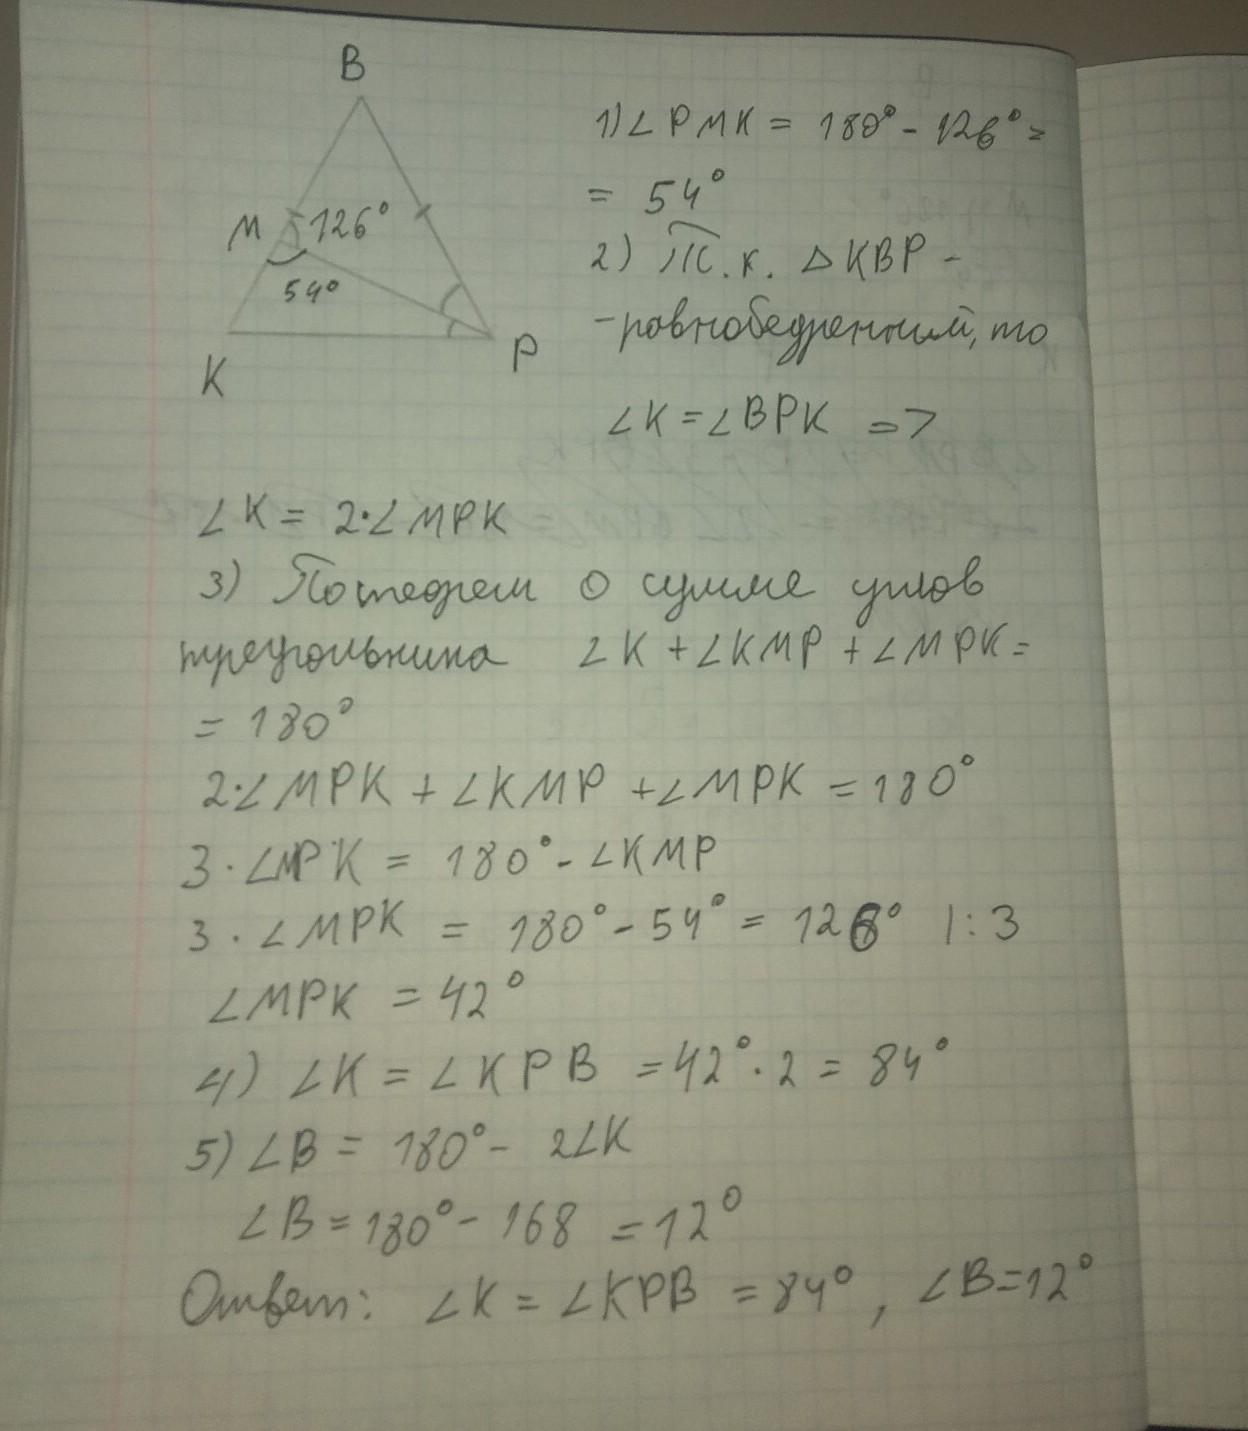 B
M 126°
54°
K
P
1) ∠PMK = 180° - 126° =
= 54°
2) Т.к. △KBP -
- равнобедренный, то
∠K = ∠BPK =>
∠K = 2·∠MPK
3) По теорем о сумме углов
треугольника ∠K + ∠KMP + ∠MPK =
= 180°
2·∠MPK + ∠KMP + ∠MPK = 180°
3·∠MPK = 180° - ∠KMP
3·∠MPK = 180° - 54° = 126° |:3
∠MPK = 42°
4) ∠K = ∠KPB = 42°·2 = 84°
5) ∠B = 180° - 2∠K
∠B = 180° - 168 = 12°
Ответ: ∠K = ∠KPB = 84°, ∠B = 12°